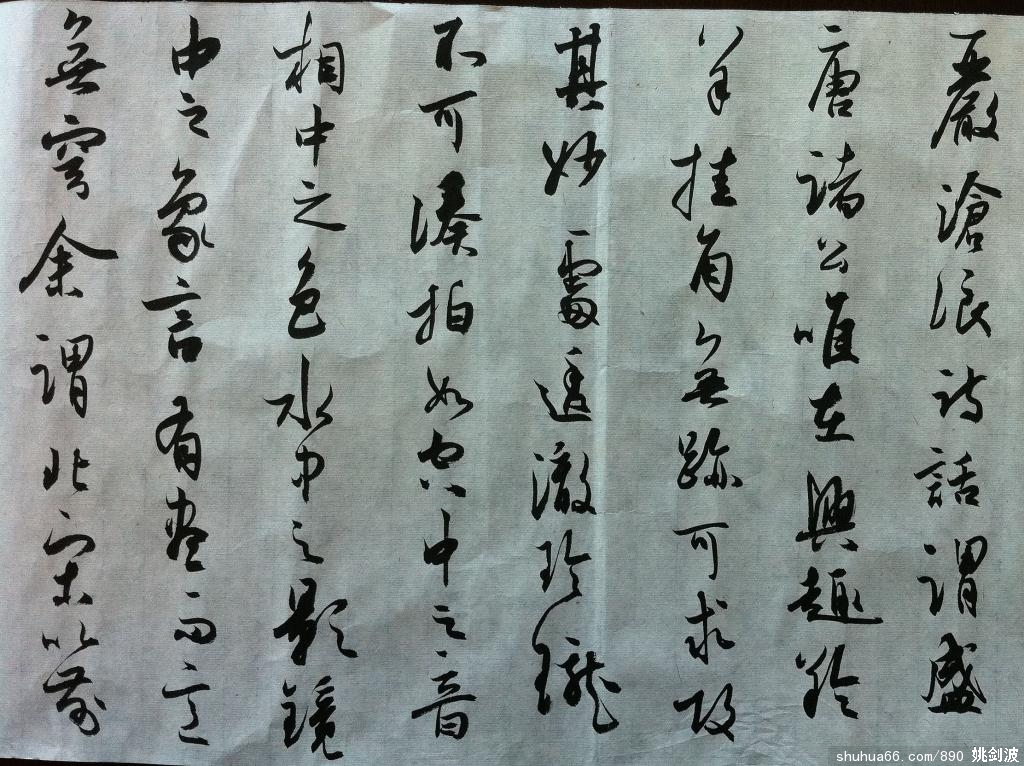 嚴滄浪詩話謂盛
唐諸公唯在興趣羚
羊挂角無跡可求故
其妙處透徹玲瓏
不可湊拍如空中之音
相中之色水中之影鏡
中之象言有盡而意
無窮余謂北宋以前
shuhua66.com/890 姚剑波